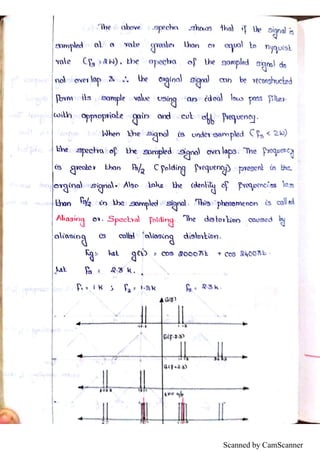 The above spectra shows that if the signal is
sampled at a rate greater than or equal to nyquist
rate (fs ≥ 2W). the spectra of the sampled signal do
not over lap & ∴ the orginal signal can be reconstructed
form its sample value using an ideal low pass filter
with appropriate gain and cut off frequency.
When the signal is under sampled (fs < 2W)
the spectra of the sampled signal overlaps. The frequency
is greater than fs/2 (folding frequency) present in the
orginal signal. Also take the identity of frequencies less
than fs/2 in the sampled signal. This phenomenon is called
Aliasing or. Spectral folding. The distortion caused by
aliasing is called "aliasing distortion.
Eg: let g(t) = cos 2000πt + cos 2400πt.
let fs = 2.3 k.
f1 = 1 k ; f2 = 1.2k fs = 2.3k.
G(f)
G(f-2.3)
G(f+2.3)
Scanned by CamScanner